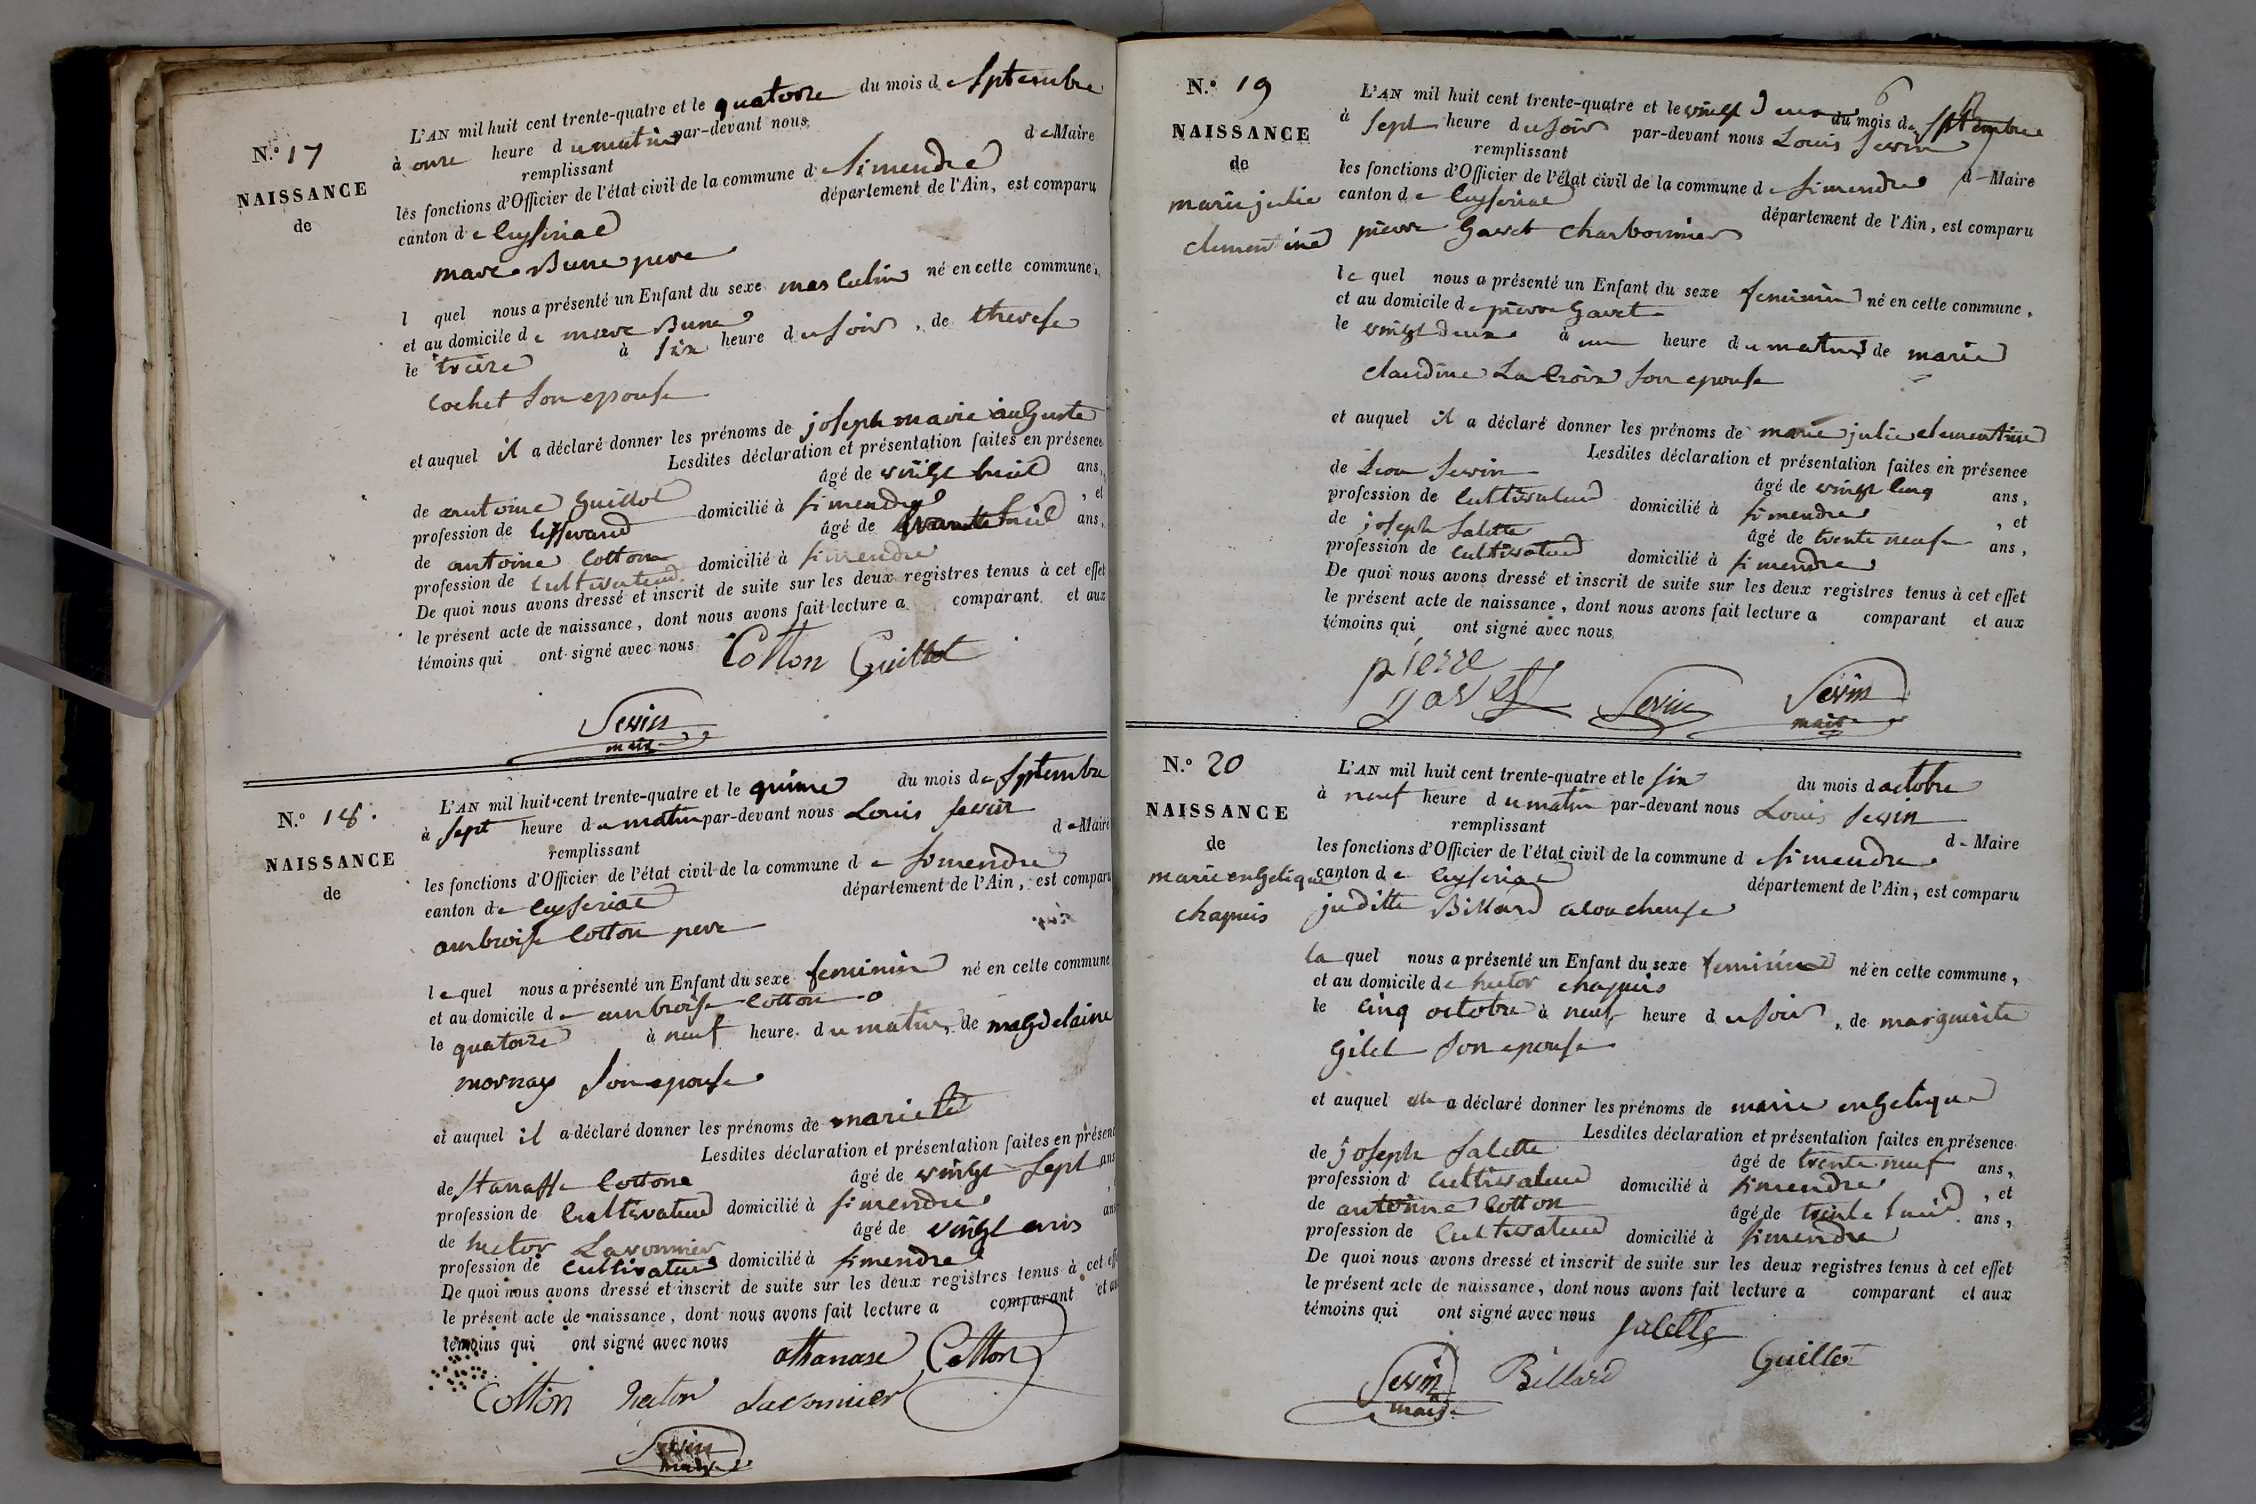 N.º 17
NAISSANCE
de
L'AN mil huit cent trente-quatre et le quatorze du mois de Septembre
à onze heure du matin par-devant nous
remplissant de Maire
les fonctions d'Officier de l'état civil de la commune de Simendre
canton de Ceyseriat département de l'Ain, est comparu
marc Bune pere
l quel nous a présenté un Enfant du sexe masculin né en cette commune,
et au domicile de marc Bune
le treize à six heure du soir, de therese
Cochet Son epouse
et auquel il a déclaré donner les prénoms de joseph marie auguste
Lesdites déclaration et présentation faites en présence
de antoine Guillot âgé de vingt huit ans,
profession de tisserand domicilié à Simendre, et
de antoine Cotton âgé de huit ans,
profession de Cultivateur domicilié à Simendre
De quoi nous avons dressé et inscrit de suite sur les deux registres tenus à cet effet
le présent acte de naissance, dont nous avons fait lecture a comparant et aux
témoins qui ont signé avec nous
Cotton Guillot
Sevin
maire
N.º 18.
NAISSANCE
de
L'AN mil huit cent trente-quatre et le quinze du mois de Septembre
à Sept heure du matin par-devant nous Louis Sevin
remplissant de Maire
les fonctions d'Officier de l'état civil de la commune de Simendre
canton de Ceyseriat département de l'Ain, est comparu
ambroise Cotton pere
le quel nous a présenté un Enfant du sexe feminin né en cette commune
et au domicile de ambroise Cotton
le quatorze à neuf heure du matin, de magdelaine
mornay Son epouse
et auquel il a déclaré donner les prénoms de mariete
Lesdites déclaration et présentation faites en présence
de Cottone âgé de vingt Sept ans
profession de Cultivateur domicilié à Simendre
de hector Lavonnier âgé de vingt ans
profession de Cultivateur domicilié à Simendre
De quoi nous avons dressé et inscrit de suite sur les deux registres tenus à cet eff
le présent acte de naissance, dont nous avons fait lecture a comparant et au
témoins qui ont signé avec nous
athanase Cotton
Cotton hector Lavonnier
Sevin
maire
N.º 19
NAISSANCE
de
marie julie
clementine
6
L'AN mil huit cent trente-quatre et le vingt deux du mois de Septembre
à Sept heure du soir par-devant nous Louis Sevin
remplissant d Maire
les fonctions d'Officier de l'état civil de la commune de Simendre
canton de Ceyseriat département de l'Ain, est comparu
pierre Gavet Charbonnier
le quel nous a présenté un Enfant du sexe feminin né en cette commune,
et au domicile de pierre Gavet
le vingt deux à une heure du matin de marie
claudine La Croix Son epouse
et auquel il a déclaré donner les prénoms de marie julie clementine
Lesdites déclaration et présentation faites en présence
de Sevin âgé de vingt Cinq ans,
profession de Cultivateur domicilié à Simendre, et
de joseph Salette âgé de trente neuf ans,
profession de Cultivateur domicilié à Simendre
De quoi nous avons dressé et inscrit de suite sur les deux registres tenus à cet effet
le présent acte de naissance, dont nous avons fait lecture a comparant et aux
témoins qui ont signé avec nous
pierre
gavet Sevin Sevin
maire
N.º 20
NAISSANCE
de
marie engelique
chapuis
L'AN mil huit cent trente-quatre et le Six du mois d octobre
à neuf heure du matin par-devant nous Louis Sevin
remplissant d Maire
les fonctions d'Officier de l'état civil de la commune de Simendre
canton de Ceyseriat département de l'Ain, est comparu
juditte Billard acoucheuse
la quel nous a présenté un Enfant du sexe feminin né en cette commune,
et au domicile de hector chapuis
le Cinq octobre à neuf heure du soir, de marguerite
Gilet Son epouse
et auquel elle a déclaré donner les prénoms de marie engelique
Lesdites déclaration et présentation faites en présence
de joseph Salette âgé de trente neuf ans,
profession d Cultivateur domicilié à Simendre, et
de antoine Cotton âgé de trente huit ans,
profession de Cultivateur domicilié à Simendre
De quoi nous avons dressé et inscrit de suite sur les deux registres tenus à cet effet
le présent acte de naissance, dont nous avons fait lecture a comparant et aux
témoins qui ont signé avec nous
Salette
Sevin Billard Guillot
maire